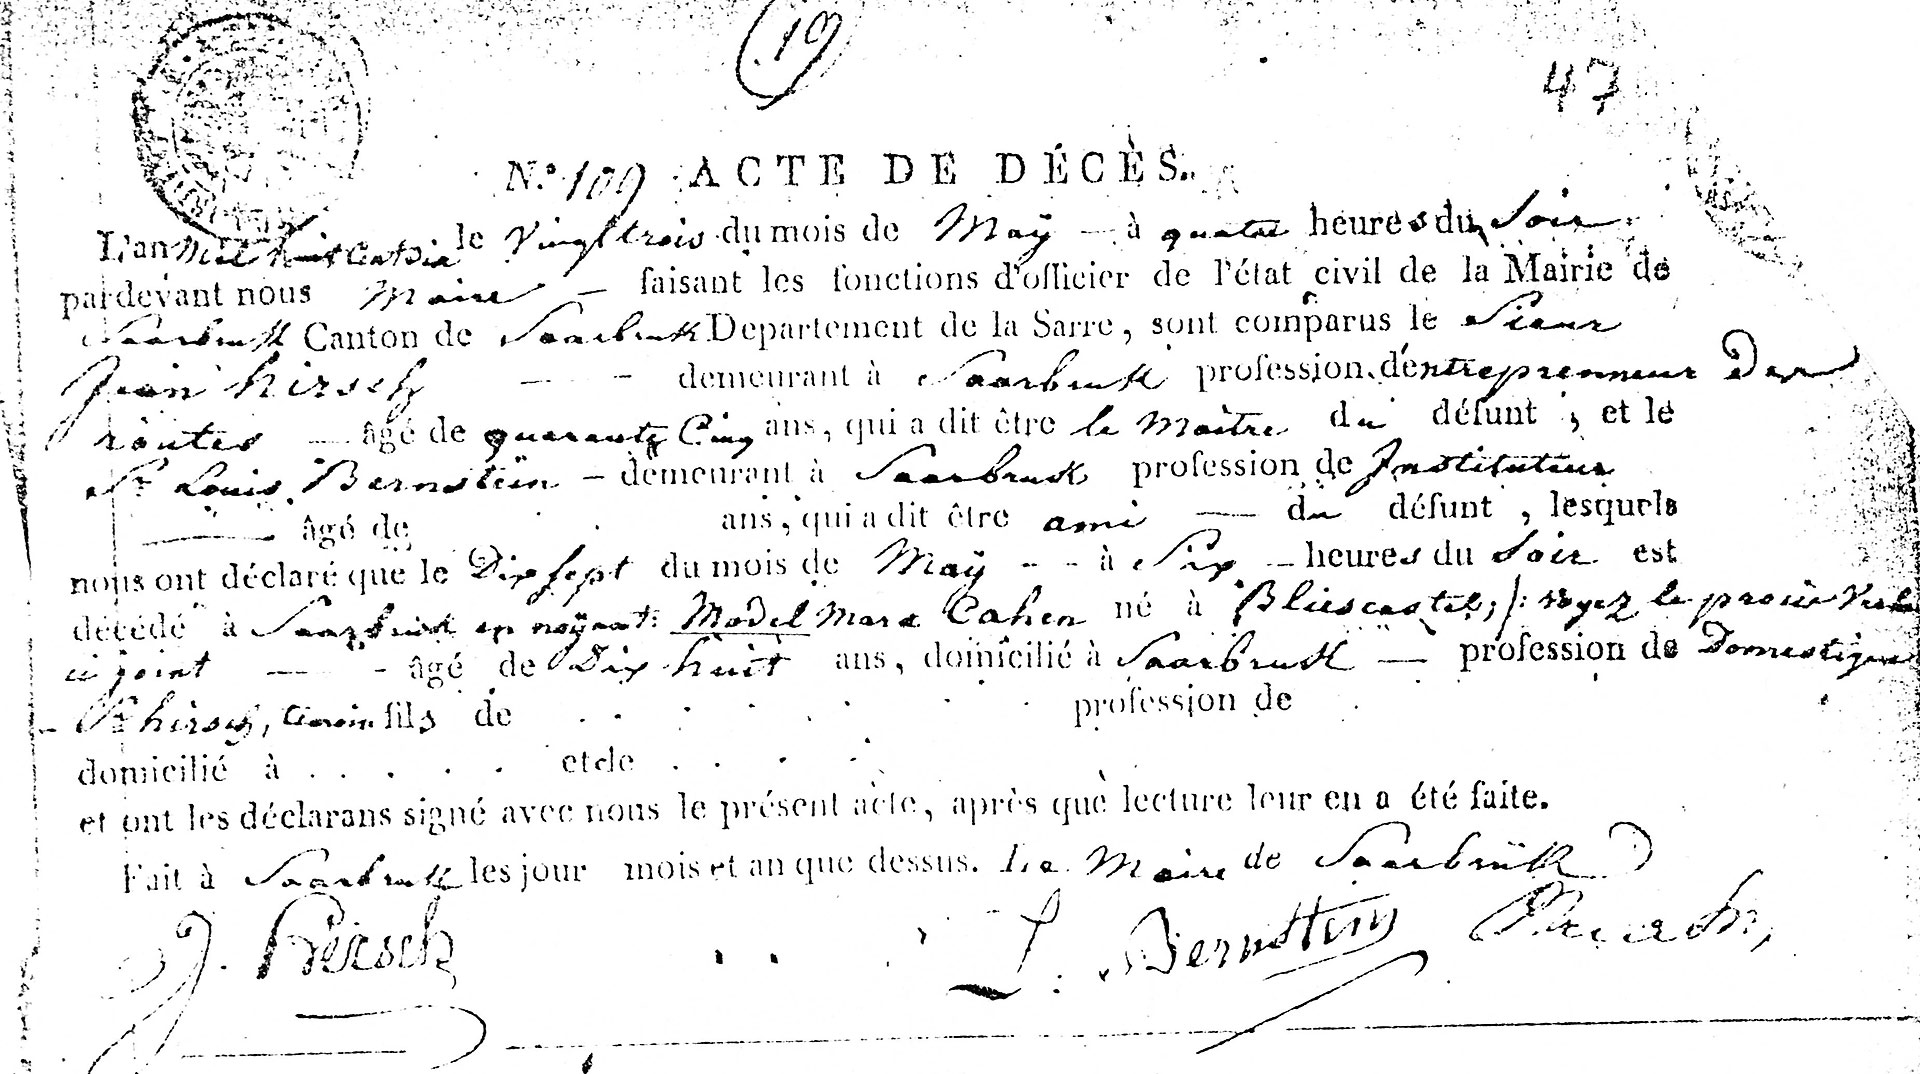 19
47
N.° 109 ACTE DE DÉCÈS.
L'an Mil huit Cent Dix le Vingt trois du mois de Maÿ - à quatre heures du Soir
pardevant nous Maire - faisant les fonctions d'officier de l'état civil de la Mairie de
Saarbruk Canton de Saarbruk Departement de la Sarre, sont comparus le Sieur
Jean hirsch - - demeurant à Saarbruk profession d'entreprenneur Des
routes - âgé de quarante Cinq ans, qui a dit être le Maitre du défunt, et le
Sr Louis Bernstein - demeurant à Saarbruk profession de Instituteur
- âgé de ans, qui a dit être ami - du défunt, lesquels
nous ont déclaré que le Dix sept du mois de Maÿ - - à Six - heures du Soir est
décédé à Saarbruk en noÿant: Model Marx Cahen né à Bliescastel, /: voyez le procès Verbal
ci joint - - âgé de Dix huit ans, domicilié à Saarbruk - profession de Domestique
- Sr hirsch, fils de . . . . . . profession de
domicilié à . . . . . et de . . . .
et ont les déclarans signé avec nous le présent acte, après que lecture leur en a été faite.
Fait à Saarbruk les jour mois et an que dessus. Le Maire de Saarbrük
J. Hirsch L. Bernstein